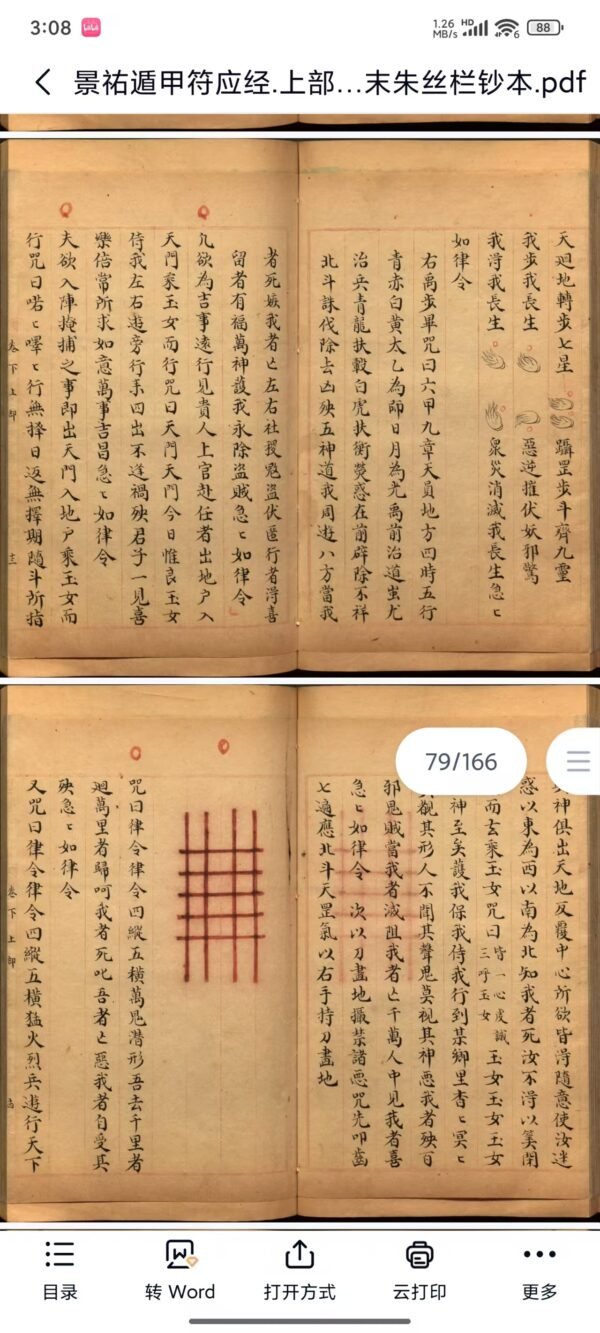 3:08
1.26 MB/s
HD
6
88
景祐遁甲符应经.上部…末朱丝栏钞本.pdf
天廻地轉步七星
躡罡步斗齊九靈
我步我長生
惡逆摧伏妖邪驚
我得我長生
衆災消滅我長生急〻
如律令
右禹步畢咒曰六甲九章天員地方四時五行
青赤白黃太乙為師日月為光禹前治道蚩尤
治兵青龍扶轂白虎扶衡熒惑在前辟除不祥
北斗誅伐除去凶殃五神道我周遊八方當我
者死嫉我者亡左右社稷冦盜伏匿行者得喜
留者有福萬神護我永除盜賊急〻如律令
凢欲為吉事遠行見貴人上官赴任者出地户入
天門乘玉女而行咒曰天門天門今日惟良玉女
侍我左右遊旁行于四出不逢禍殃君子一見喜
樂倍常所求如意萬事吉昌急〻如律令
夫欲入陣掩捕之事即出天門入地户乘玉女而
行咒曰喏〻嗶〻行無擇日返無擇期隨斗所指
卷下上部
十三
79/166
神俱出天地反覆中心所欲皆得隨意使汝迷
惑以東為西以南為北知我者死汝不得以筭閉
而去乘玉女咒曰
皆一心虔誠
三呼玉女
玉女玉女玉女
神至矣護我保我侍我行到某鄉里杳〻冥〻
覩其形人不聞其聲鬼莫視其神惡我者殃百
邪鬼賊當我者滅阻我者亡千萬人中見我者喜
急〻如律令
次以刀畫地攝禁諸惡咒先叩齒
七遍應北斗天罡氣以右手持刀畫地
咒曰律令律令四縱五橫萬鬼潛形吾去千里者
廻萬里者歸呵我者死叱吾者亡惡我者自受其
殃急〻如律令
又咒曰律令律令四縱五橫猛火烈兵遊行天下
卷下上部
目录
转 Word
打开方式
云打印
更多